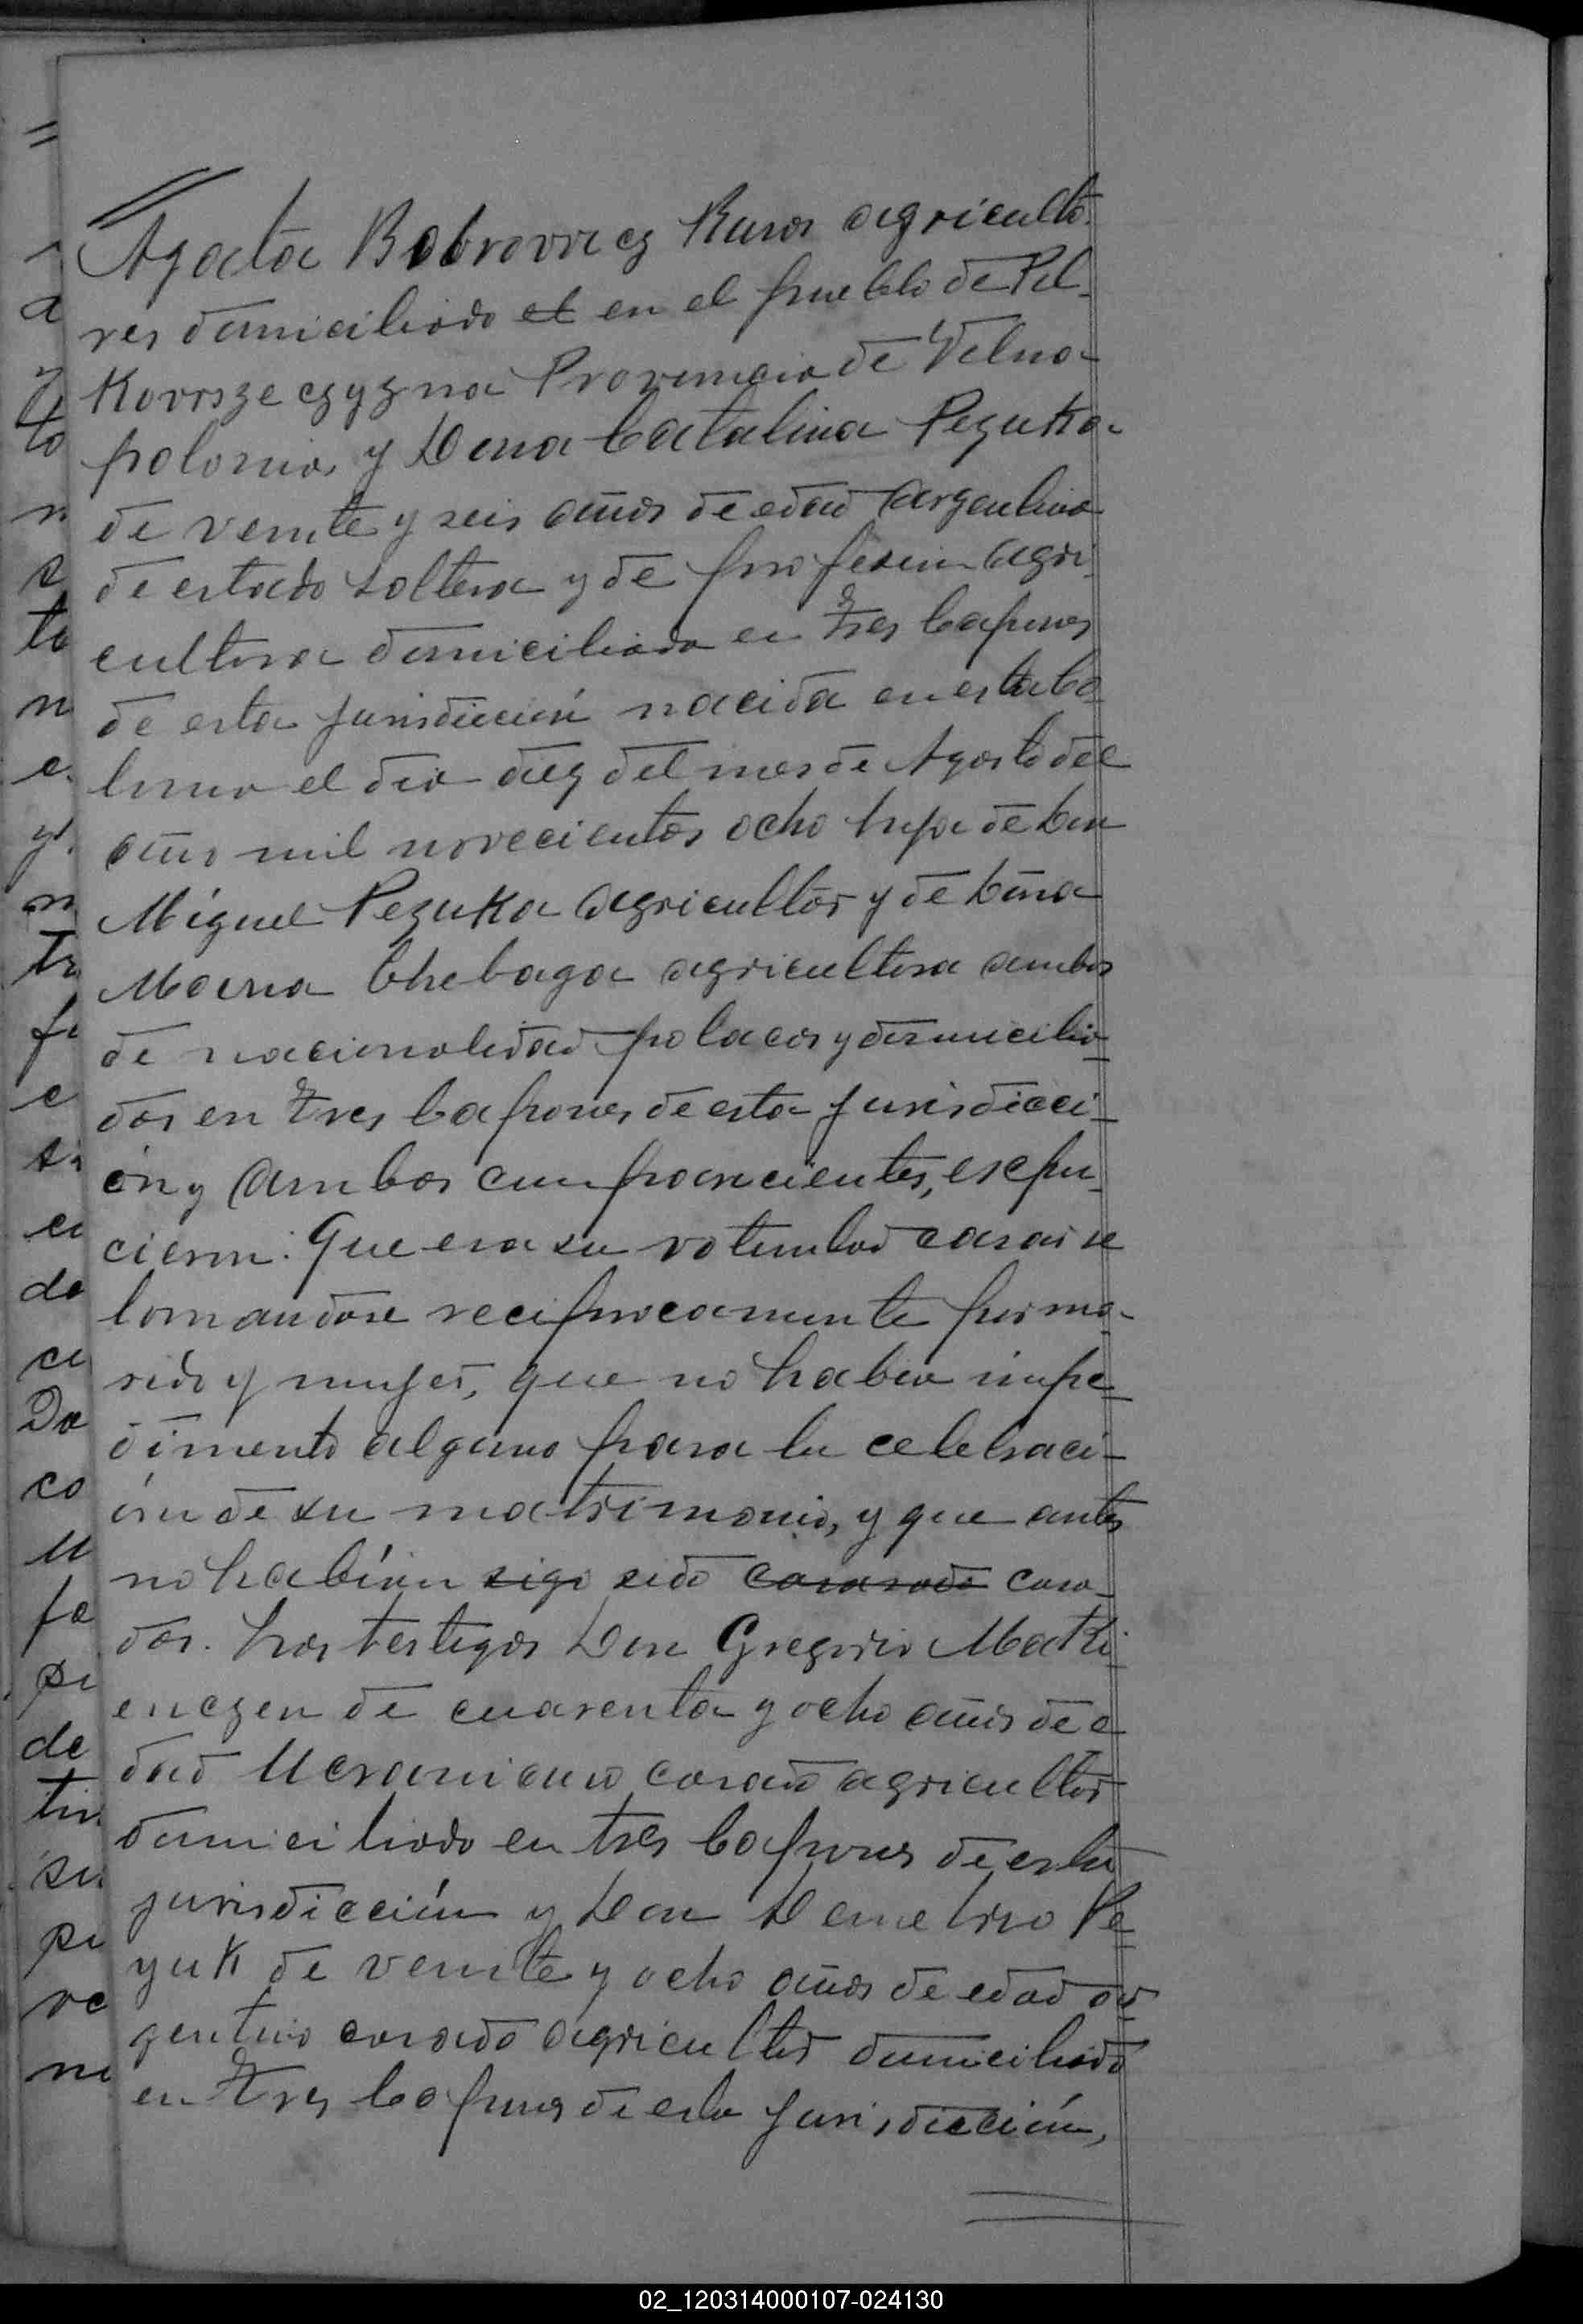 =
Agata Bobrovvicz Rusos agriculto-
res domiciliado el en el pueblo de Pil-
Kovrszeczyzna Provincia de Vilna
polonia, y Dona Catalina Pezuka
de veinte y seis años de edad argentina
de estado soltera y de profesion agri-
cultora domiciliada en Tres Capones
de esta jurisdicción nacida en esta Co-
lonia el dia diez del mes de Agosto del
año mil novecientos ocho hija de Don
Miguel Pezuka agricultor y de Dona
Maria Chebaga agricultora ambos
de nacionalidad polacos y domicilia-
dos en Tres Capones de esta jurisdicci-
ón y Ambos comparecientes, expu-
cieron: Que era su voluntad casarse
tomandose reciprocamente por ma-
rido y mujer, que no habia impe-
dimento alguno para la celebraci-
ón de su matrimonio, y que antes
no habían sigo sido casarado casa-
dos. Los testigos Don Gregorio Maki-
enczen de cuarenta y ocho años de e-
dad Ucraniano casado agricultor
domiciliado en tres Capones de esta
jurisdicción y Don Demetrio Pe-
yuk de veinte y ocho años de edad ar-
gentino casado agricultor domiciliado
en Tres Capones de esta jurisdicción,
02_120314000107-024130